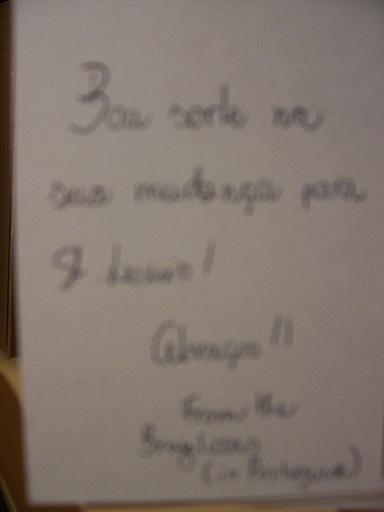 Boa sorte na
sua mudança para
St Louis!
Abraços!!
From the
Brazilians
(in Portuguese)